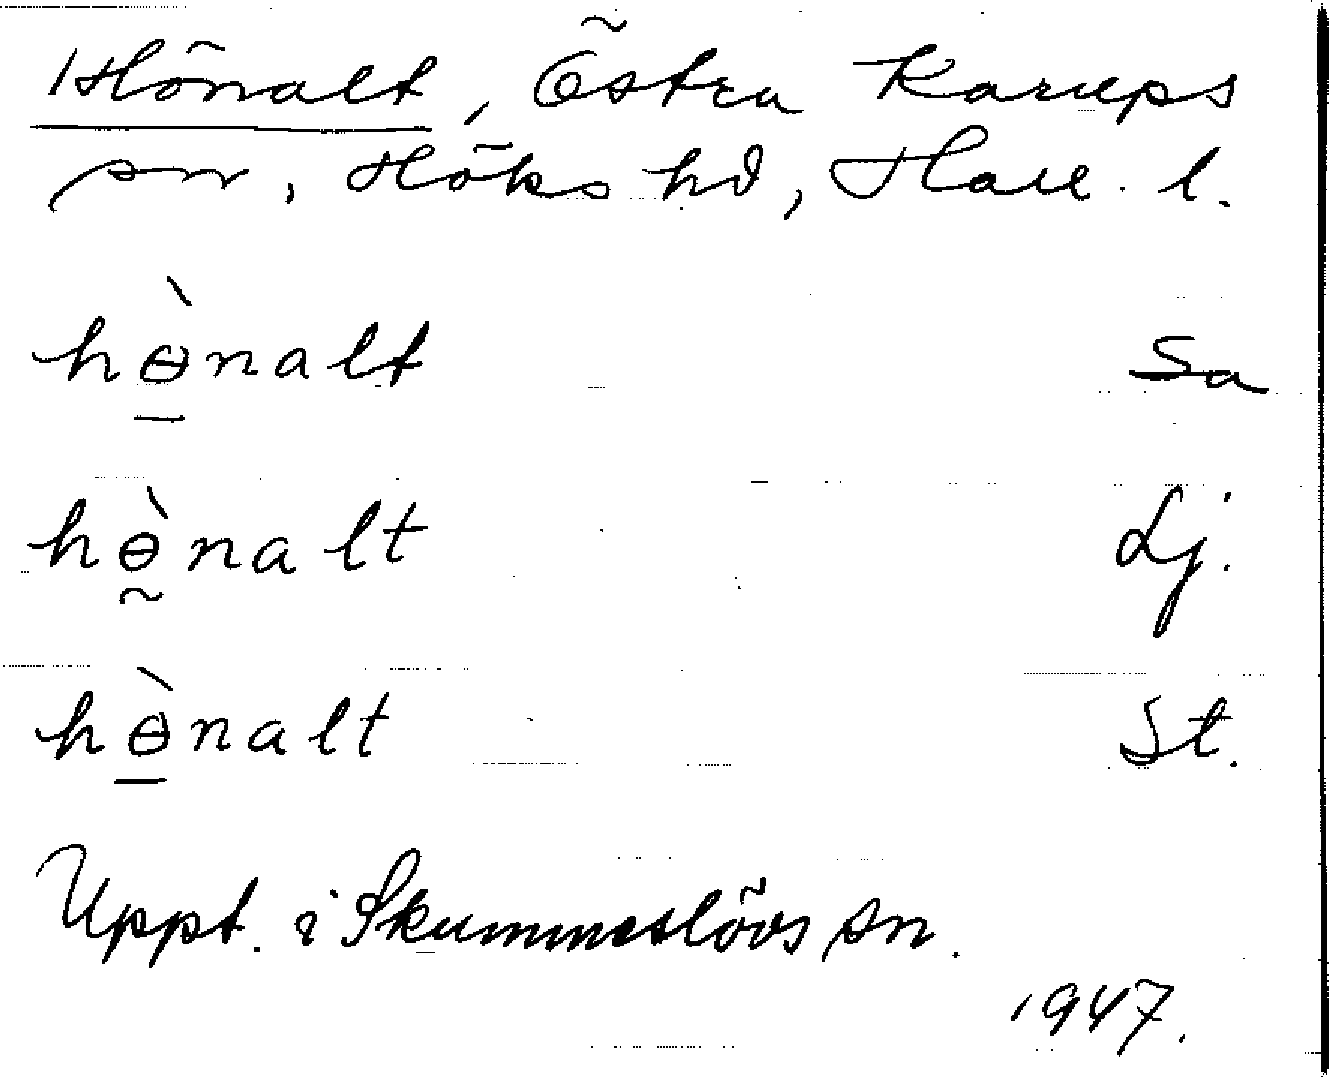 Hönalt, Östra Karups
sn, Höks hd, Hall. l.
hɵ̀nalt Sa
hɵ̀nalt Lj.
hɵ̀nalt St.
Uppt. i Skummeslövs sn.
1947.